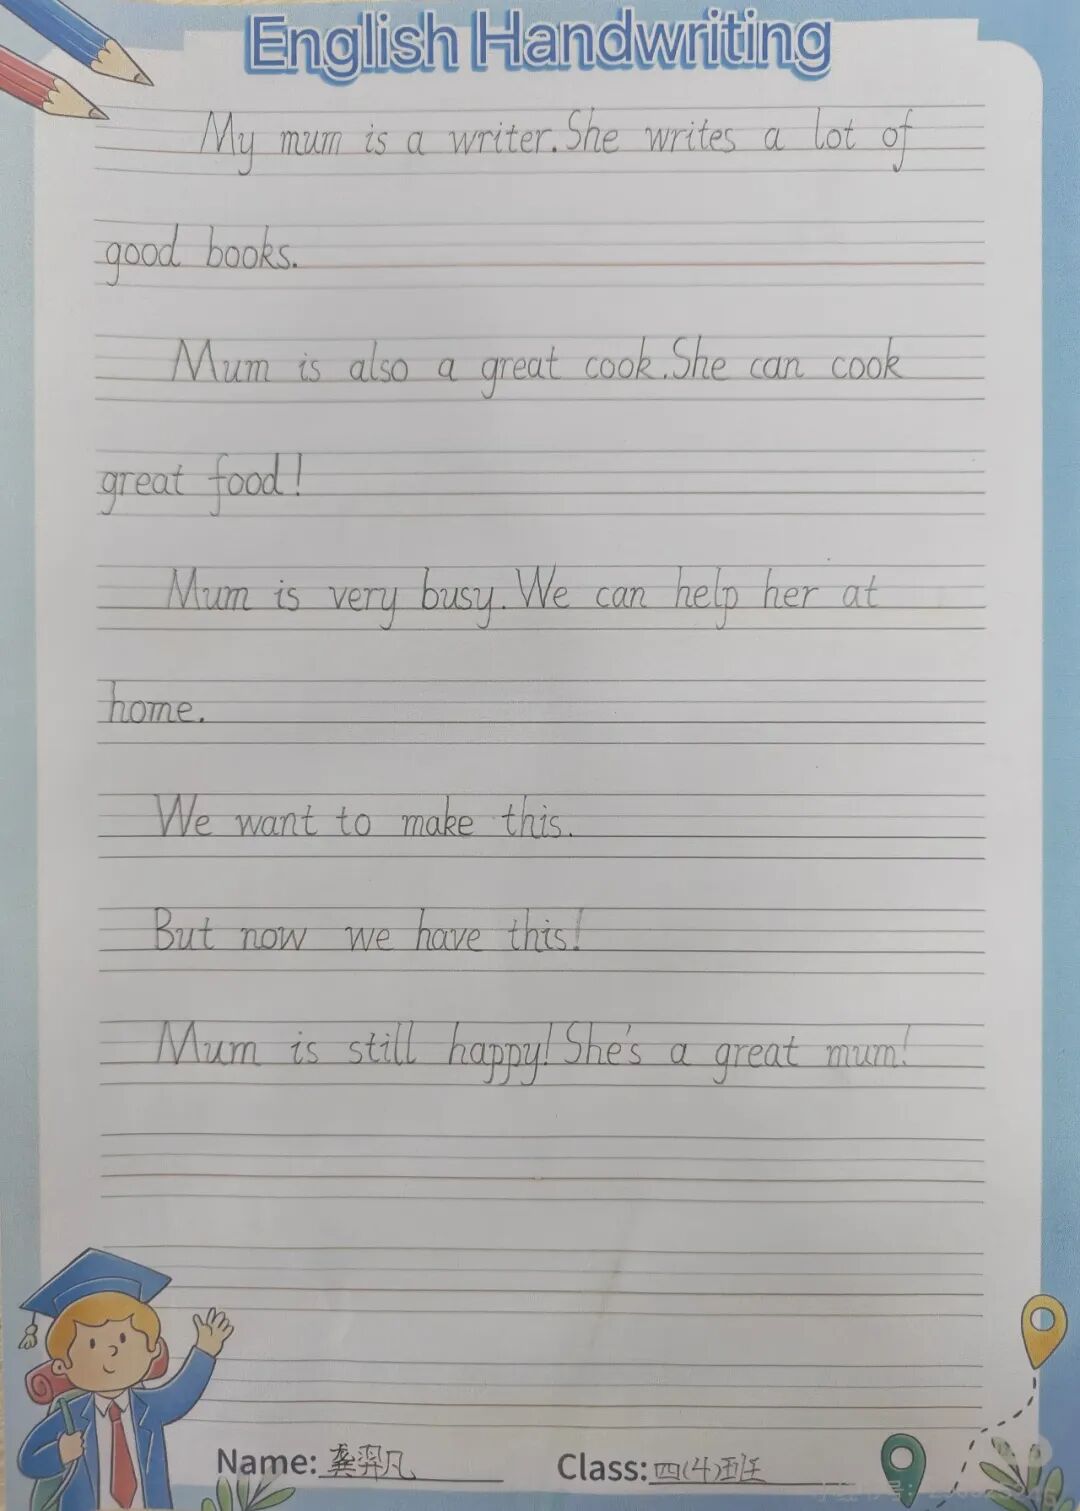 English Handwriting
My mum is a writer. She writes a lot of
good books.
Mum is also a great cook. She can cook
great food!
Mum is very busy. We can help her at
home.
We want to make this.
But now we have this!
Mum is still happy! She's a great mum!
Name: 龚羿凡 Class: 四(4)班